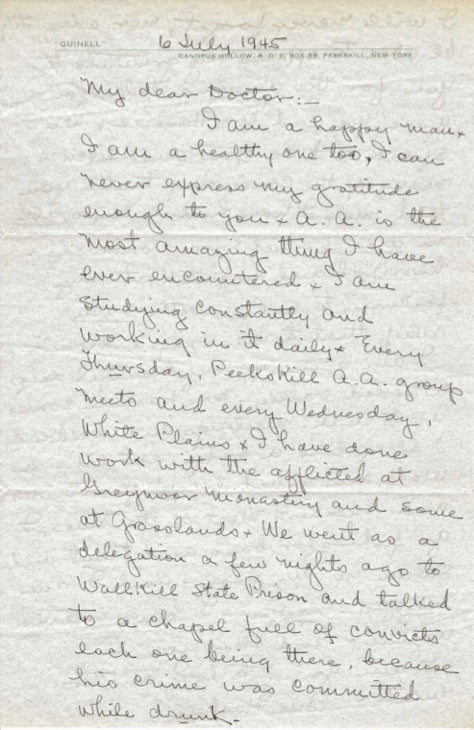 "QUINELL" 6 July 1945
CANOPUS HOLLOW, R. D. 2, BOX 59, PEEKSKILL, NEW YORK
My dear Doctor:-
I am a happy man x
I am a healthy one too, I can
never express my gratitude
enough to you x A.A. is the
most amazing thing I have
ever encountered x I am
studying constantly and
working in it daily x Every
Thursday, Peekskill A.A. group
meets and every Wednesday,
White Plains x I have done
work with the afflicted at
Greymoor Monastery and some
at Grasslands x We went as a
delegation a few nights ago to
Wallkill State Prison and talked
to a chapel full of convicts
each one being there, because
his crime was committed
while drunk.